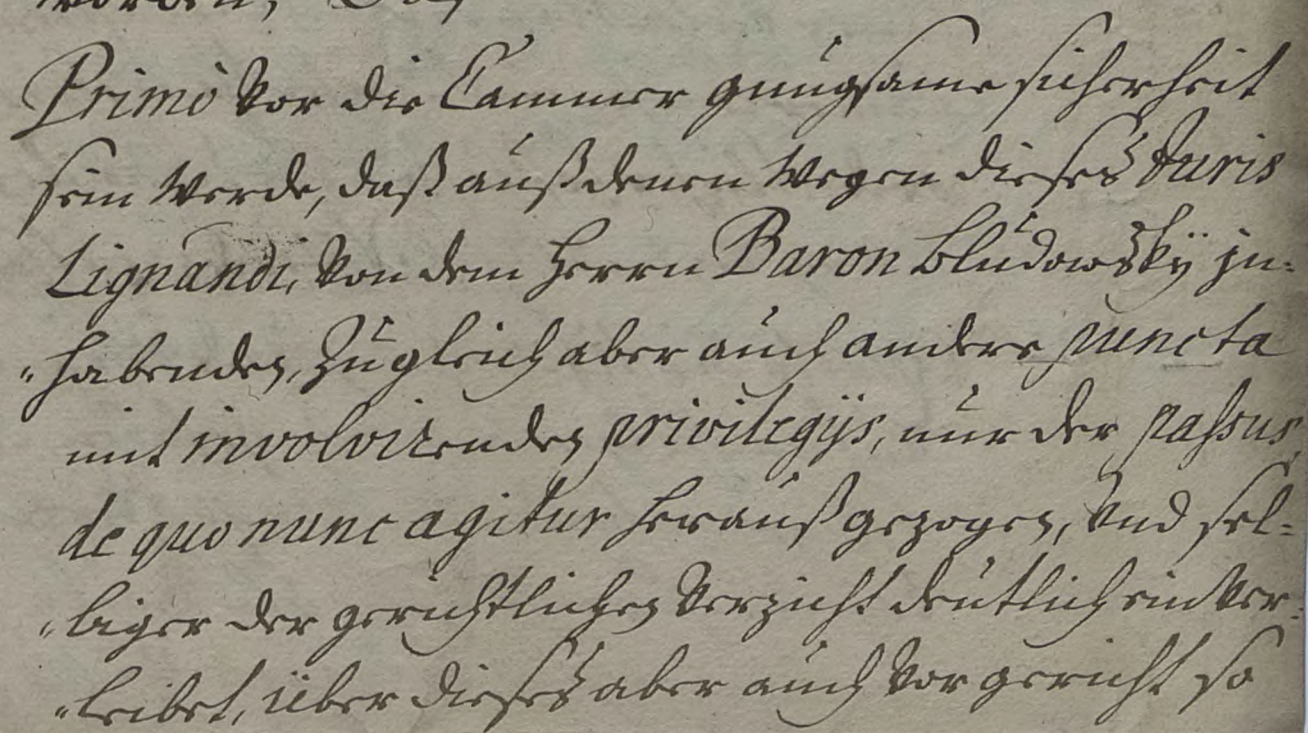 worden, Daß
Primò Vor die Cammer gnugsame sicherheit
sein Werde, daß auß denen Wegen dieses Juris
Lignandi, Von dem Herrn Baron Bludowsky jn-
"habenden, Zugleich aber auch andere puncta
mit involvirenden privilegijs, nur der passus,
de quo nunc agitur herauß gezogen, Vnd sel-
"biger der gerichtlichen Verzicht deutlich ein Ver-
"leibet, über dieses aber auch Vor gericht so